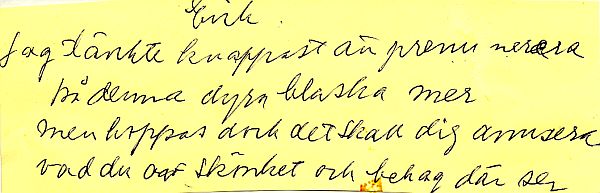 Eirk.
Jag tänkte knappast att prenumerera
på denna dyra blaska mer
men hoppas dock det skall dig amusera
vad du av skönhet och behag där ser